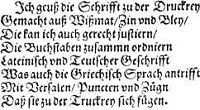 Ich geuß die Schrifft zu der Druckrey
Gemacht auß Wißmat / Zin vnd Bley /
Die kan ich auch gerecht justiern /
Die Buchstaben zusammn ordniern
Lateinisch vnd Teutscher Geschrifft
Was auch die Griechisch Sprach antrifft
Mit Versalen / Puncten vnd Zügn
Daß sie zu der Truckrey sich fügen.